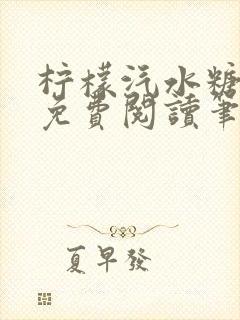 柠檬汽水糖
免費閱讀筆
夏早發